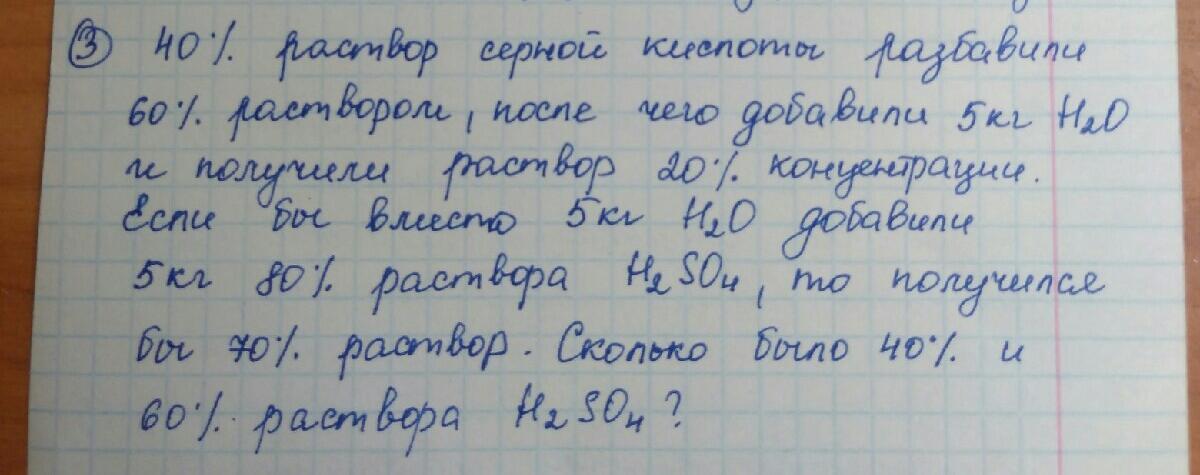 ③ 40% раствор серной кислоты разбавили
60% раствором, после чего добавили 5кг H₂O
и получили раствор 20% концентрации.
Если бы вместо 5кг H₂O добавили
5кг 80% раствора H₂SO₄, то получился
бы 70% раствор. Сколько было 40% и
60% раствора H₂SO₄?